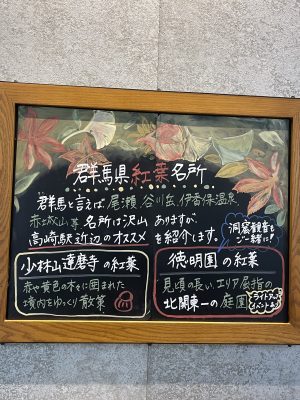 群馬県紅葉名所
群馬と言えば尾瀬、谷川岳、伊香保温泉
赤城山等 名所は沢山 ありますが
高崎駅近辺のオススメ を紹介します。
洞窟観音も
ご一緒に!
少林山達磨寺の紅葉
赤や黄色の木々に囲まれた
境内をゆっくり散策
徳明園の紅葉
見頃の長い、エリア屈指の
北関東一の庭園
ライトアップ
イベントあり